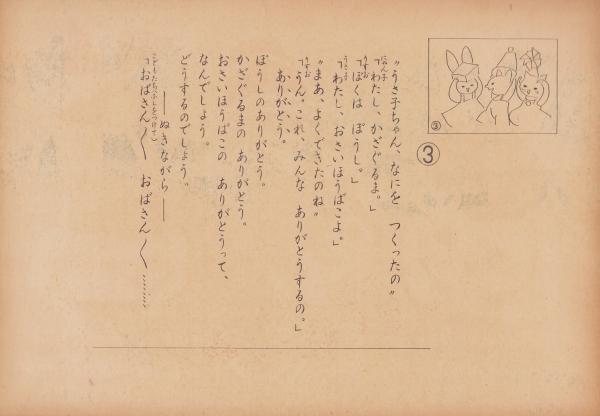 ③
③
〝うさ子ちゃん、なにを つくったの〟
「わたし、かざぐるま。」
「ぼくは ぼうし。」
「わたし、おさいほうばこよ。」
〝まあ、よくできたのね〟
「うん。これ、みんな ありがとうするの。」
ありがとう。
ぼうしのありがとう。
かざぐるまの ありがとう。
おさいほうばこの ありがとうって、
なんでしょう。
どうするのでしょう。
――ぬきながら――
(こどもたち、ふしをつけて)
「おばさん〳〵 おばさん〳〵………